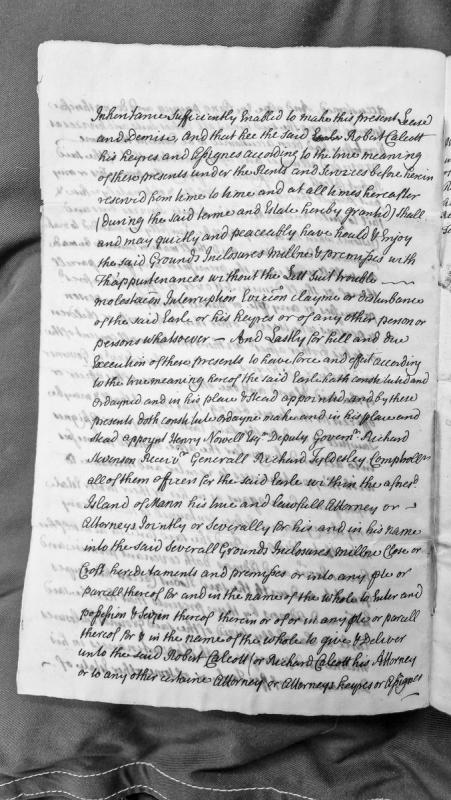 Inheritance Sufficiently Enabled to make this present Lease
and Demise, And that hee the said Robert Calcott
his heyres and Assignes according to the true meaning
of these presents under the Rents and Services before herein
reserved from time to time and at all times hereafter
(during the said terme and Estate hereby granted) shall
and may quietly and peaceably have hould & Enjoy
the said Grounds Inclosures Millne & premisses with
Th'appurtenances without the Lett Suit trouble
molestacon Interruption Eviccon clayme or disturbance
of the said Earle or his heyres or of any other person or
persons whatsoever – And Lastly for full and due
Execution of these presents to have force and effect according
to the true meaning hereof the said Earle hath constituted and
ordayned and in his place & Stead appointed, and by these
presents doth constitute ordayne make and in his place and
Stead appoynt Henry Nowell Esqr. Deputy Governr. Richard
Stevenson Receivr. Generall Richard Tyldesley Comptrollr
all of them officers for the said Earle within the afsd.
Island of Mann his true and lawfull Attorney or
Attorneys Joyntly or Severally for his and in his name
into the said Severall Grounds Inclosures Millne Close or
Croft hereditaments and premisses or into any pte or
parcell thereof for and in the name of the whole to Enter and
possession & Seizen thereof therein or of or in any pte or parcell
thereof for & in the name of the whole to give & deliver
unto the said Robert Calcott or Richard Calcott his Attorney
or to any other certaine Attorney or Attorneys heyres or Assignes